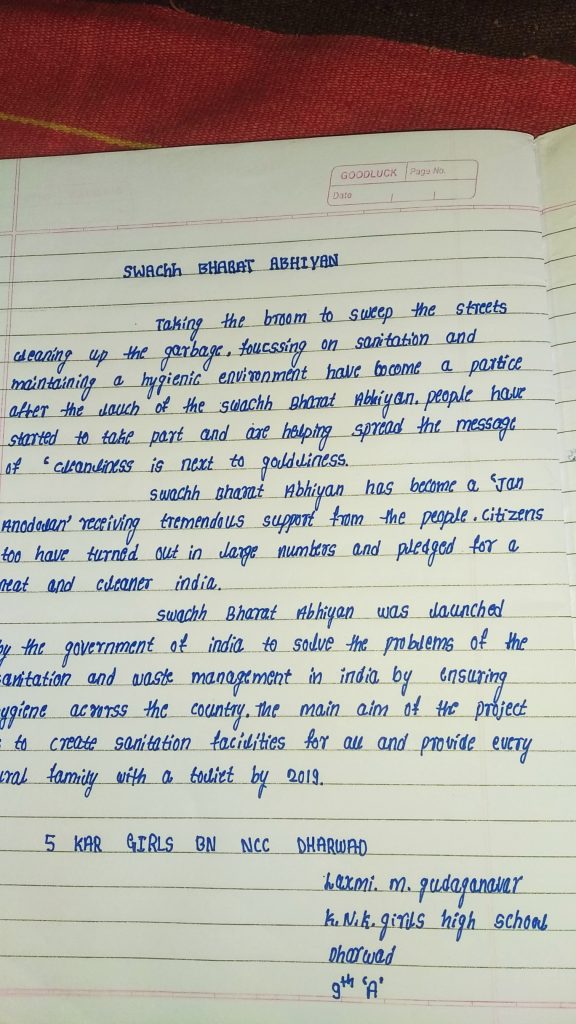 GOODLUCK Page No.
Date
SWAChh BHARAT ABHIYAN
Taking the broom to sweep the streets
cleaning up the garbage, foucssing on sanitation and
maintaining a hygienic environment have become a partice
after the lauch of the swachh Bharat Abhiyan. people have
started to take part and are helping spread the message
of 'cleanliness is next to goldliness.
swachh Bharat Abhiyan has become a 'Jan
Anodolan' receiving tremendous support from the people. citizens
too have turned out in large numbers and pledged for a
neat and cleaner india.
swachh Bharat Abhiyan was launched
by the government of india to solve the problems of the
sanitation and waste management in india by ensuring
ygiene acrorss the country. The main aim of the project
to create sanitation facilities for all and provide every
ural family with a toliet by 2019.
5 KAR GIRLS BN NCC DHARWAD
Laxmi. M. gudaganavar
K.N.K. girls high school
Dharwad
9th 'A'